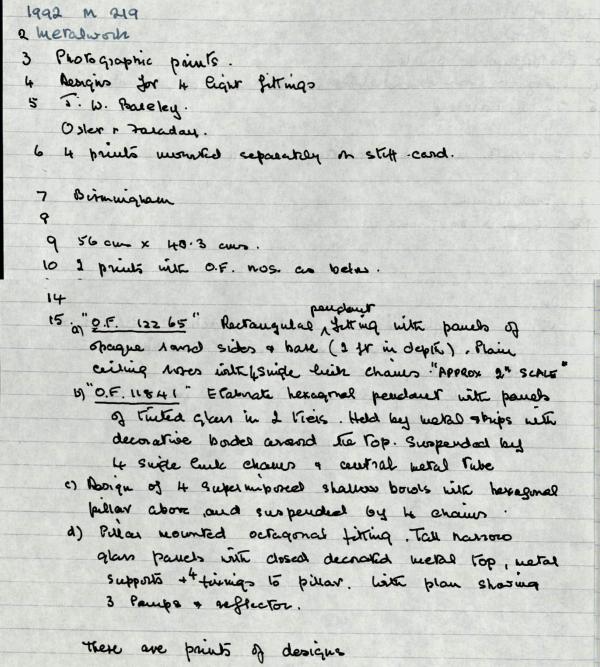 1992 M 219
2 Metalwork
3 Photographic prints.
4 Designs for 4 light fittings
5 J. W. Bareley.
Osler & Faraday.
6 4 prints mounted separately on stiff card.
7 Birmingham
8
9 56 cms x 40.3 cms.
10 2 prints with O.F. nos. as below.
14
15. a) "O.F. 12265" Rectangular pendant fitting with panels of
opaque round sides & base (2 ft in depth). Plain
ceiling roses with 4 single link chains. "APPROX 2" SCALE"
b) "O.F. 11841" Elaborate hexagonal pendant with panels
of tinted glass in 2 tiers. Held by metal strips with
decorative border around the top. Suspended by
4 single link chains & central metal tube
c) Design of 4 superimposed shallow bowls with hexagonal
pillar above and suspended by 4 chains.
d) Pillar mounted octagonal fitting. Tall narrow
glass panels with closed decorated metal top, metal
supports + 4 fixings to pillar. With plan showing
3 lamps & reflector.
There are prints of designs